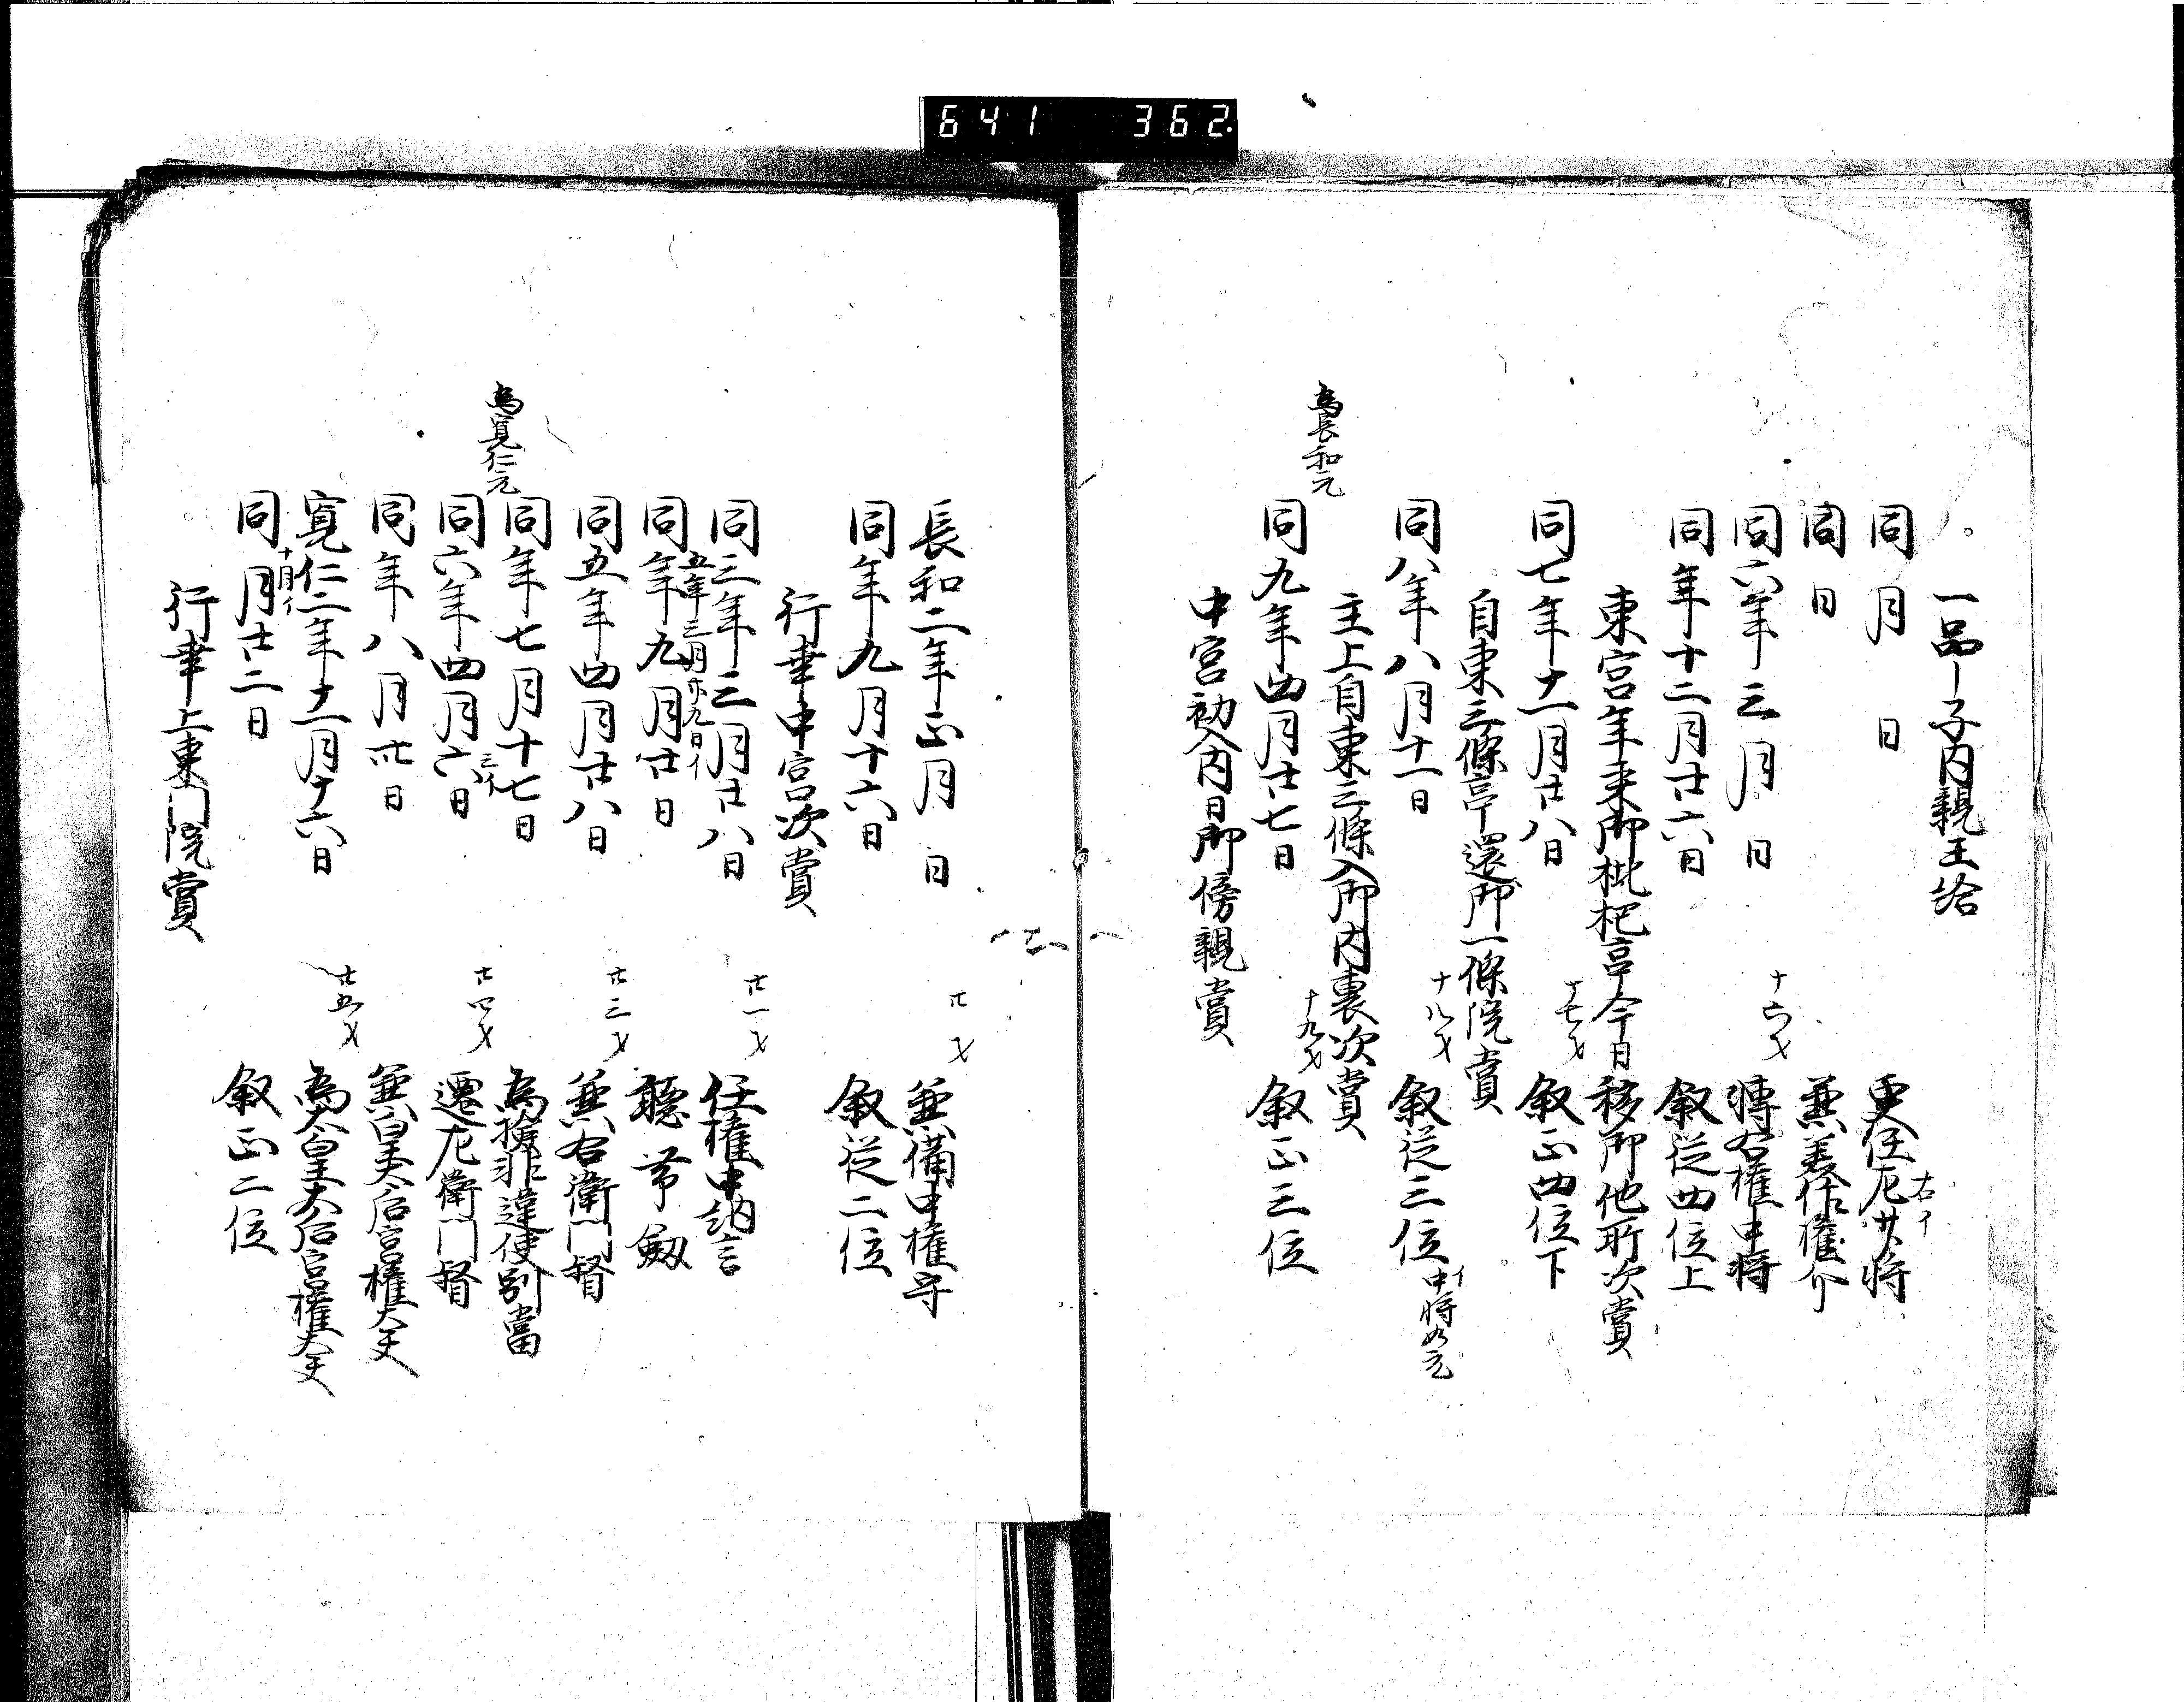 641 362
一品ー子内親王給
同月 日 更任左少将
右イ
同日 兼美作権介
同六年三月 日 十六才 転右権中将
同年十二月廿六日 叙従四位上
東宮年来御枇杷亭今日移御他所次賞
同七年十一月廿八日 十七才 叙正四位下
自東三條亭還御一條院賞
同八年八月十一日 十八才 叙従三位 中将如元
イ
主上自東三條入御内裏次賞
為長和元
同九年四月廿七日 十九才 叙正三位
中宮初入内日御傍親賞
長和二年正月 日 廿才 兼備中権守
同年九月十六日 叙従二位
行幸中宮次賞
同三年三月廿八日 廿一才 任権中納言
五年三月廿九日イ
同年九月廿日 聴帯劔
同五年四月廿八日 廿三才 兼右衛門督
同年七月十七日 為検非違使別當
為寛仁元
同六年四月六日 廿四才 遷左衛門督
三イ
同年八月廿日 兼皇太后宮権大夫
寛仁二年十一月十六日 廿五才 為太皇太后宮権大夫
十月イ
同月廿二日 叙正二位
行幸上東門院賞